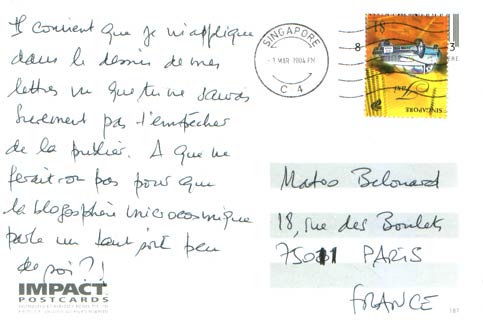 Il convient que je m'applique
dans le dessin de mes
lettres vu que tu ne saurais
surement pas t'empêcher
de la publier. A que ne
ferait-on pas pour que
la blogosphère microcosmique
parle un tant soit peu
de soi ?!
IMPACT
POSTCARDS
SINGAPORE
1 MAR 1904 PM
C 4
8
3
SINGAPORE
Mateo Belonard
18, rue des Boulets
75011 PARIS
FRANCE
187